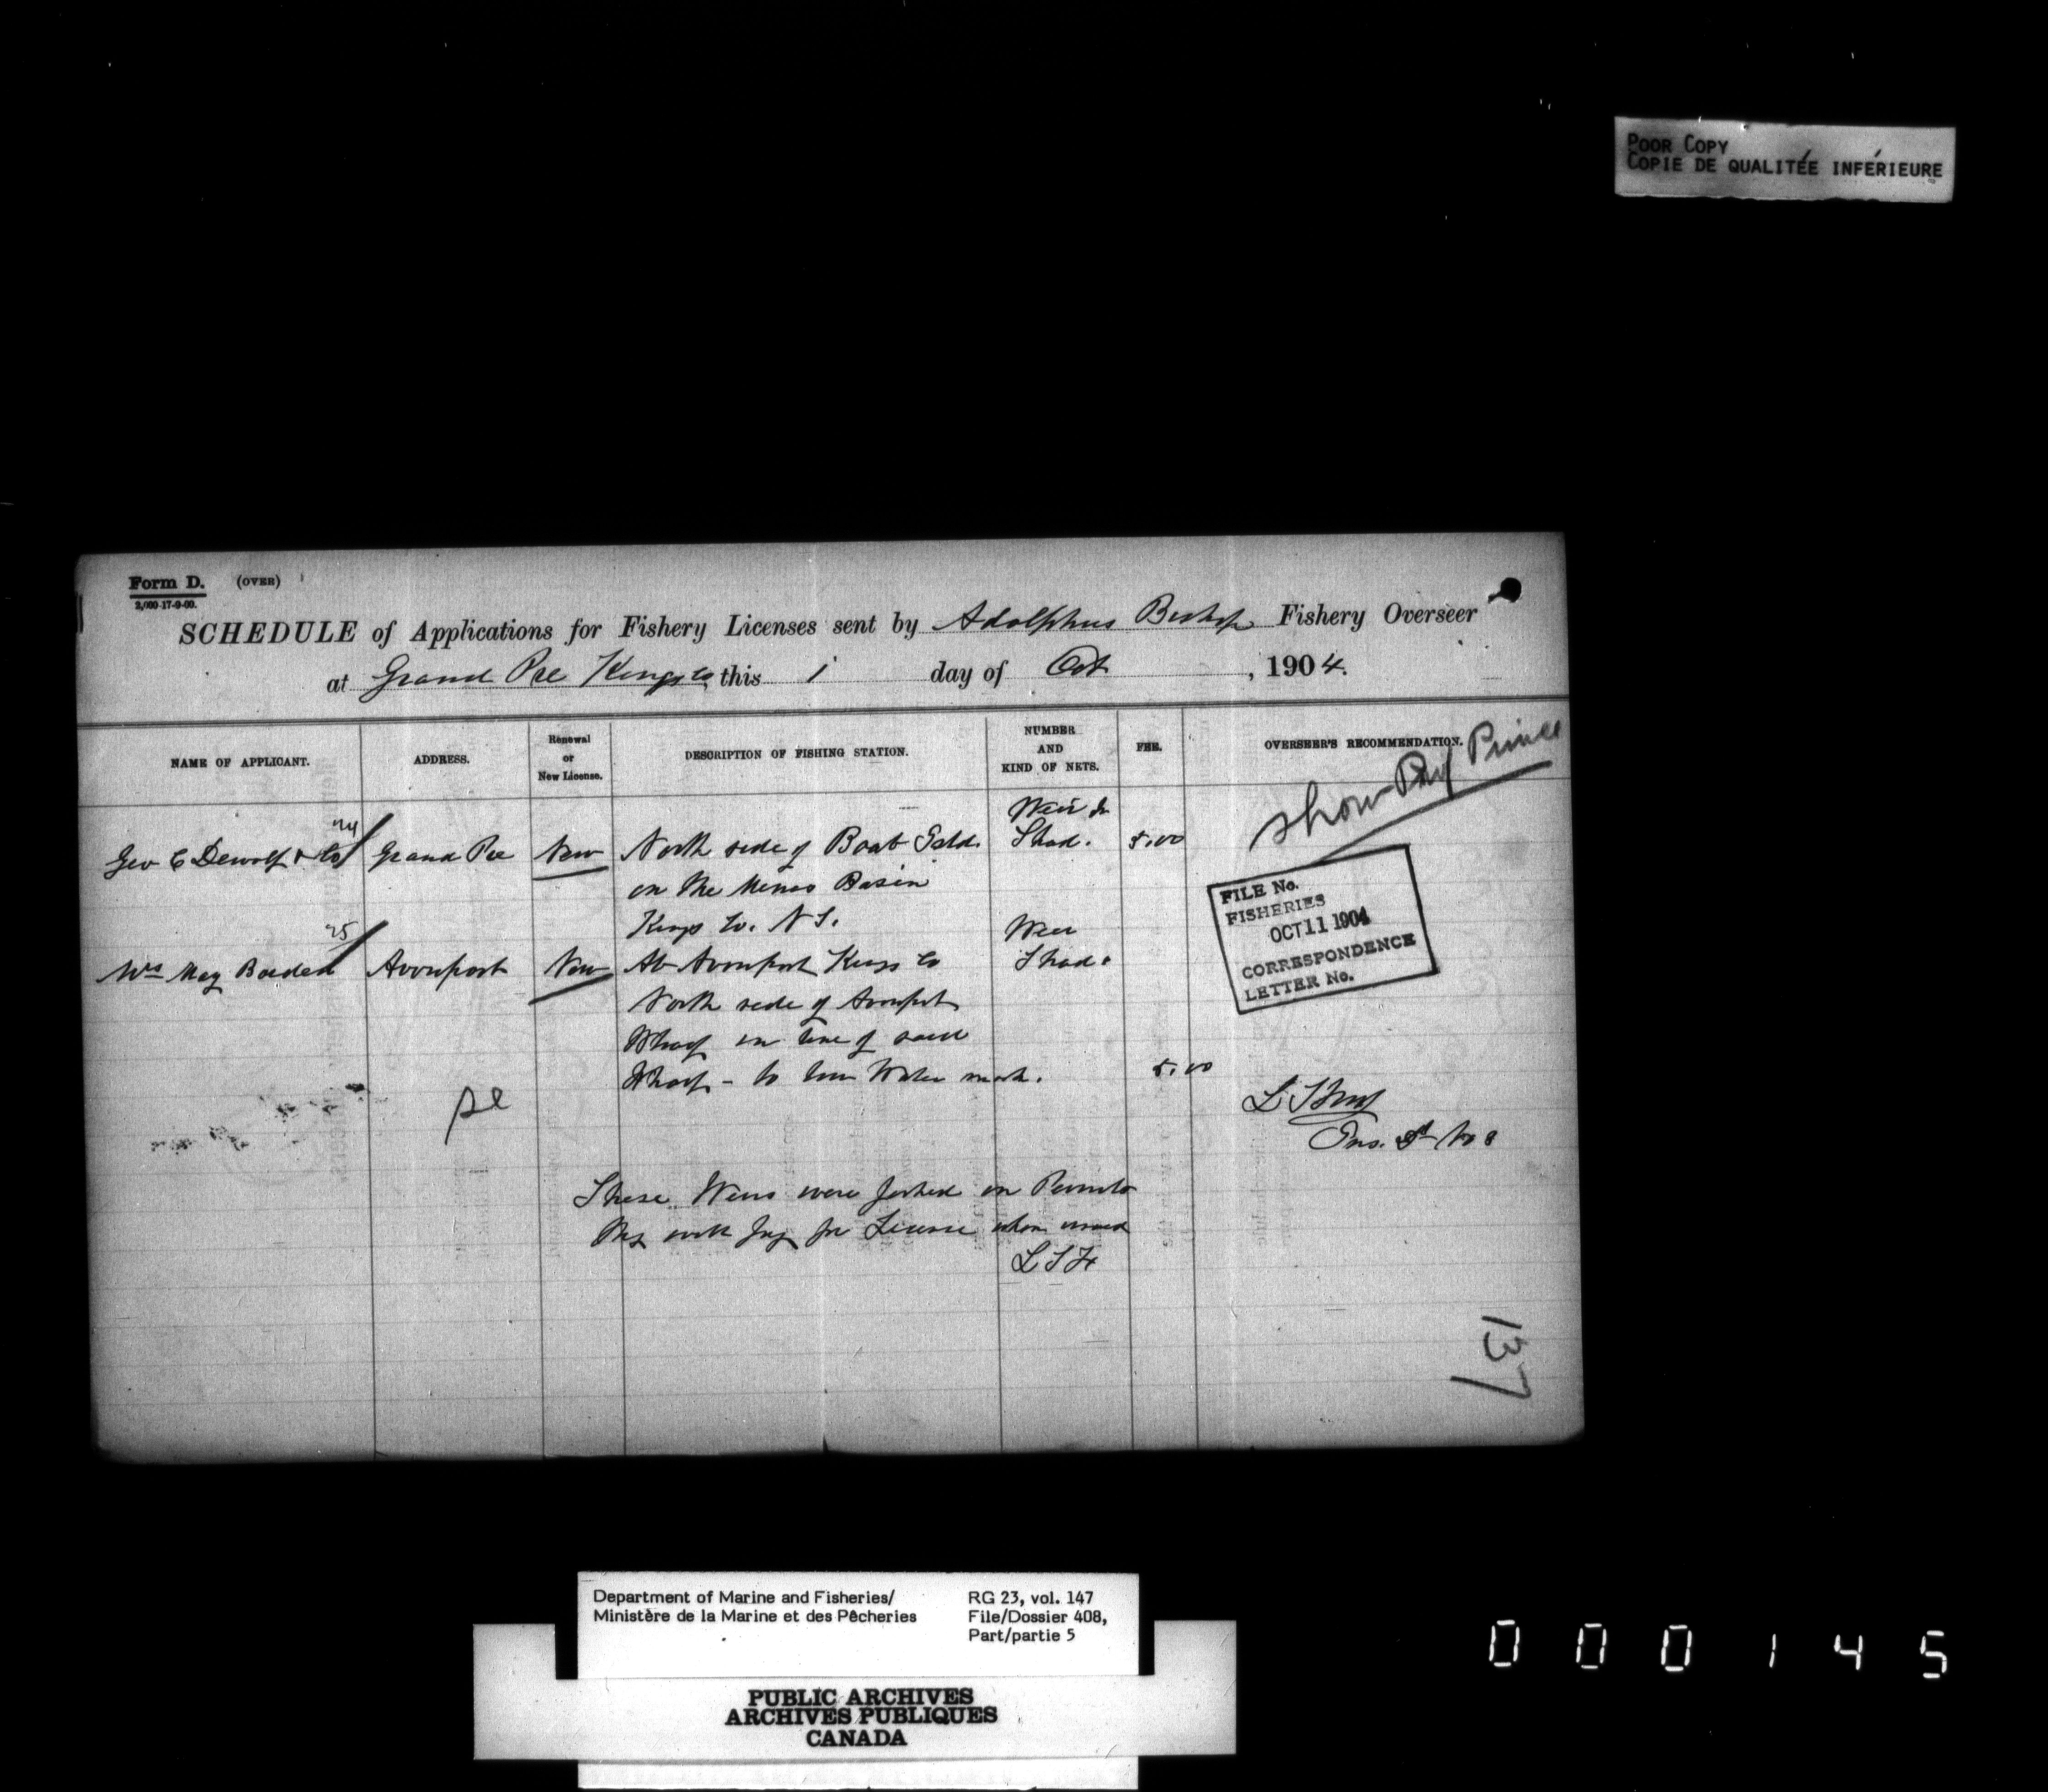 POOR COPY
COPIE DE QUALITÉE INFÉRIEURE
Form D. (OVER)
2,000-17-9-00.
SCHEDULE of Applications for Fishery Licenses sent by Adolphus Bishop Fishery Overseer
at Grand Pre Kings Co this 1 day of Oct , 1904.
NAME OF APPLICANT. ADDRESS. Renewal or New License. DESCRIPTION OF FISHING STATION. NUMBER AND KIND OF NETS. FEE. OVERSEER'S RECOMMENDATION.
Show Prof Prince
Weir
Geo E Dewolf & Co Grand Pre New North side of Boat Isld. Shad. 5.00
on the Minas Basin
Kings Co. N S.
25 Weir
May Borden Avonport New At Avonport Kings Co Shad.
North side of Avonport
Wharf in line of said
Wharf - to low Water mark. 5.00
FILE No.
FISHERIES
OCT 11 1904
CORRESPONDENCE
LETTER No.
Ins. No 8
These Weirs were fished on Permits
for License when issued
137
Department of Marine and Fisheries/
Ministère de la Marine et des Pêcheries
RG 23, vol. 147
File/Dossier 408,
Part/partie 5
PUBLIC ARCHIVES
ARCHIVES PUBLIQUES
CANADA
000145